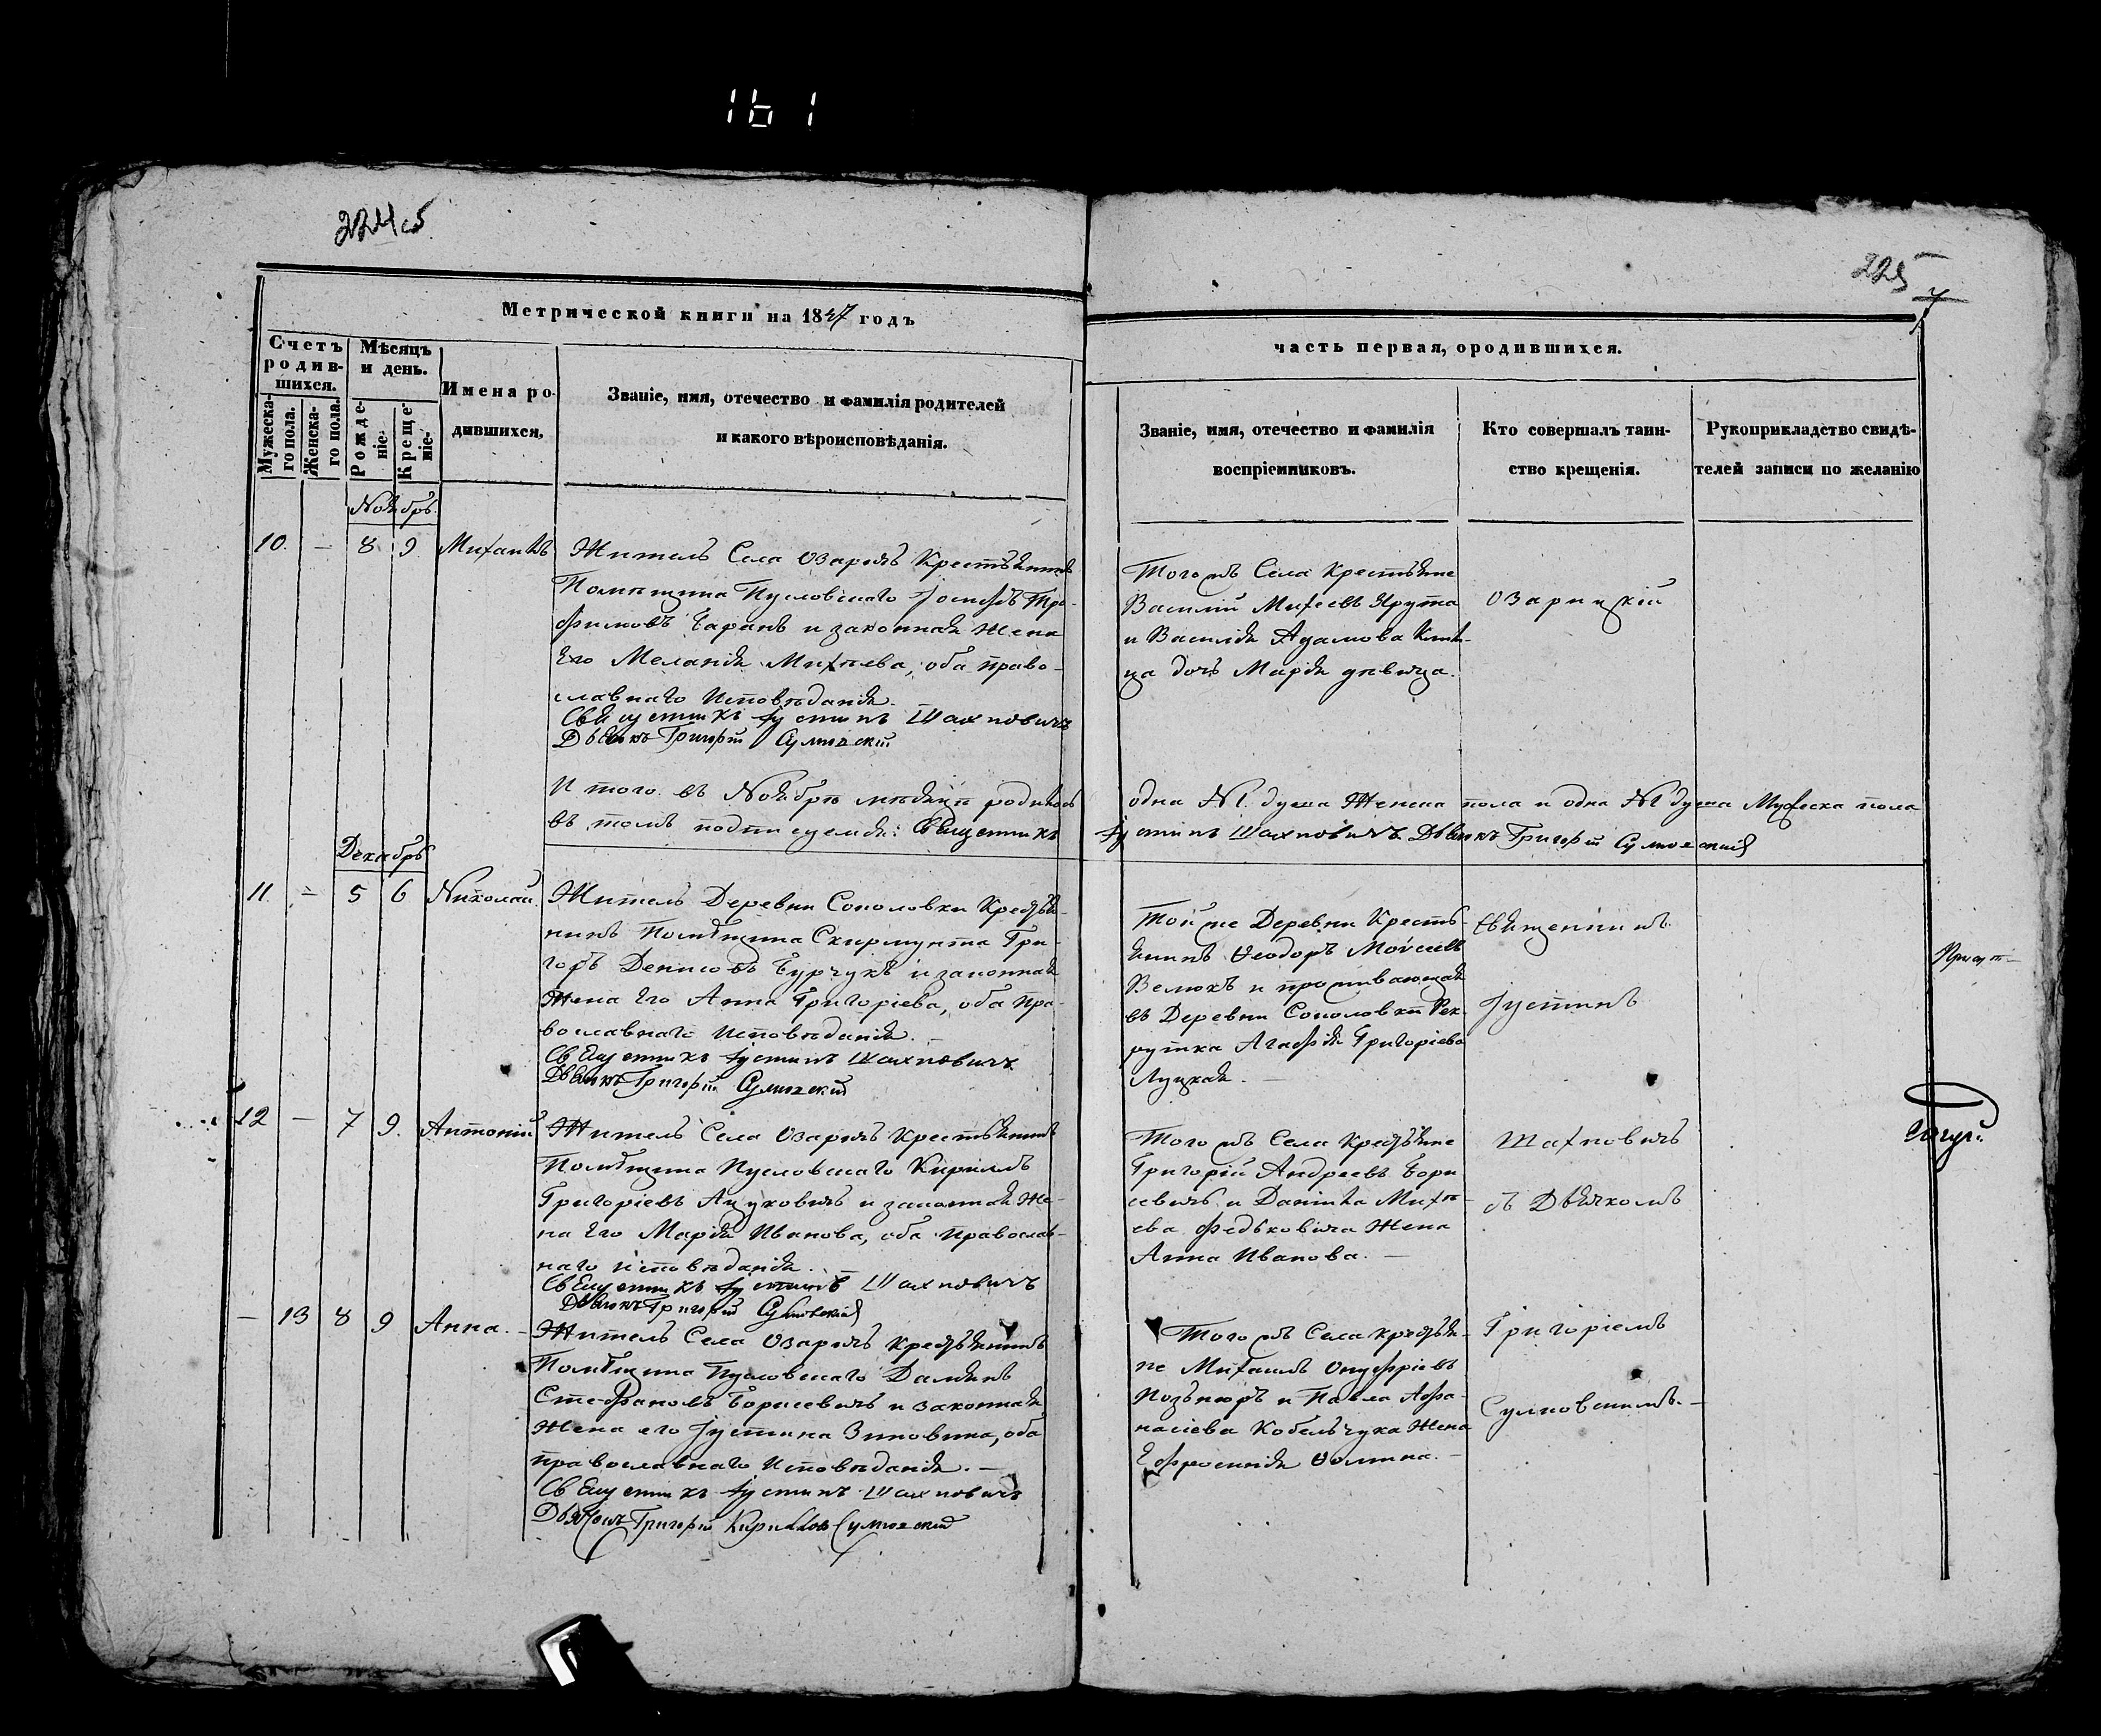 161
224 об
225
Метрической книги на 1847 годъ
часть первая, о родившихся.
Счетъ родив-
шихся.
Мужеска-
го пола.
Женска-
го пола.
Мѣсяцъ
и день.
Рожде-
ніе.
Креще-
ніе.
Имена ро-
дившихся.
Званіе, имя, отечество и фамилія родителей
и какого вѣроисповѣданія.
Званіе, имя, отечество и фамилія
воспріемниковъ.
Кто совершалъ таин-
ство крещенія.
Рукоприкладство свидѣ-
телей записи по желанію
Ноябрь
10. — 8 9 Михаилъ
Житель Села Озаричъ Крестьянинъ
Помѣщика Пусловскаго Іосифъ Тро-
фимовъ Баранъ и законная Жена
Его Меланія Михѣева, оба право-
славнаго Исповѣданія.
Священникъ Іустинъ Шахновичъ
Дьячокъ Григорій Сулковскій
Тогожъ Села Крестьяне
Василій Михеевъ Крута
и Василія Адамова
ца дочь Марія дѣвица.
Озарицкій
Итого въ Ноябрѣ мѣсяцѣ родилось одна №1. душа Женска пола и одна №1 душа Мужеска пола
въ томъ подписуемся: Священникъ Іустинъ Шахновичъ Дьячокъ Григорій Сулковскій
Декабрь
11. — 5 6 Николай
Житель Деревни Соколовки Крестья-
нинъ Помѣщика Скирмунта Гри-
горъ Денисовъ Бурчукъ и законная
Жена Его Анна Григоріева, оба Пра-
вославнаго Исповѣданія. —
Священникъ Іустинъ Шахновичъ
Дьячокъ Григорій Сулковскій
Тойже Деревни Кресть-
янинъ Ѳеодоръ Моѵсеевъ
Велюкъ и проживающая
въ Деревни Соколовкѣ Рек-
рутка Агафія Григоріева
Луцкая. —
Священникъ
Іустинъ
12 — 7 9. Антоній
Житель Села Озаричъ Крестьянинъ
Помѣщика Пусловскаго Кириллъ
Григоріевъ Ацуковичъ и законная Же-
на Его Марія Иванова, оба Православ-
наго исповѣданія.
Священникъ Іустинъ Шахновичъ
Дьячокъ Григорій Сулковскій
Тогожъ Села Крестьяне
Григорій Андреевъ Бори
севичъ и Данила Михѣ-
ева Федьковича Жена
Анна Иванова. —
Шахновичъ
съ Дьячкомъ
— 13 8 9 Анна. —
Житель Села Озаричъ Крестьянинъ
Помѣщика Пусловскаго Даміянъ
Стефановъ Борисевичъ и законная
Жена его Іустина Зиновіина, оба
православнаго Исповѣданія. —
Священникъ Іустинъ Шахновичъ
Дьячокъ Григорій Кирилловъ Сулковскій
Тогожъ Села Крестья-
не Михаилъ Онуфріевъ
и Павла Афа-
насіева Кобельчука Жена
Ефросинія Ѳомина. —
Григоріемъ
Сулковскимъ. —